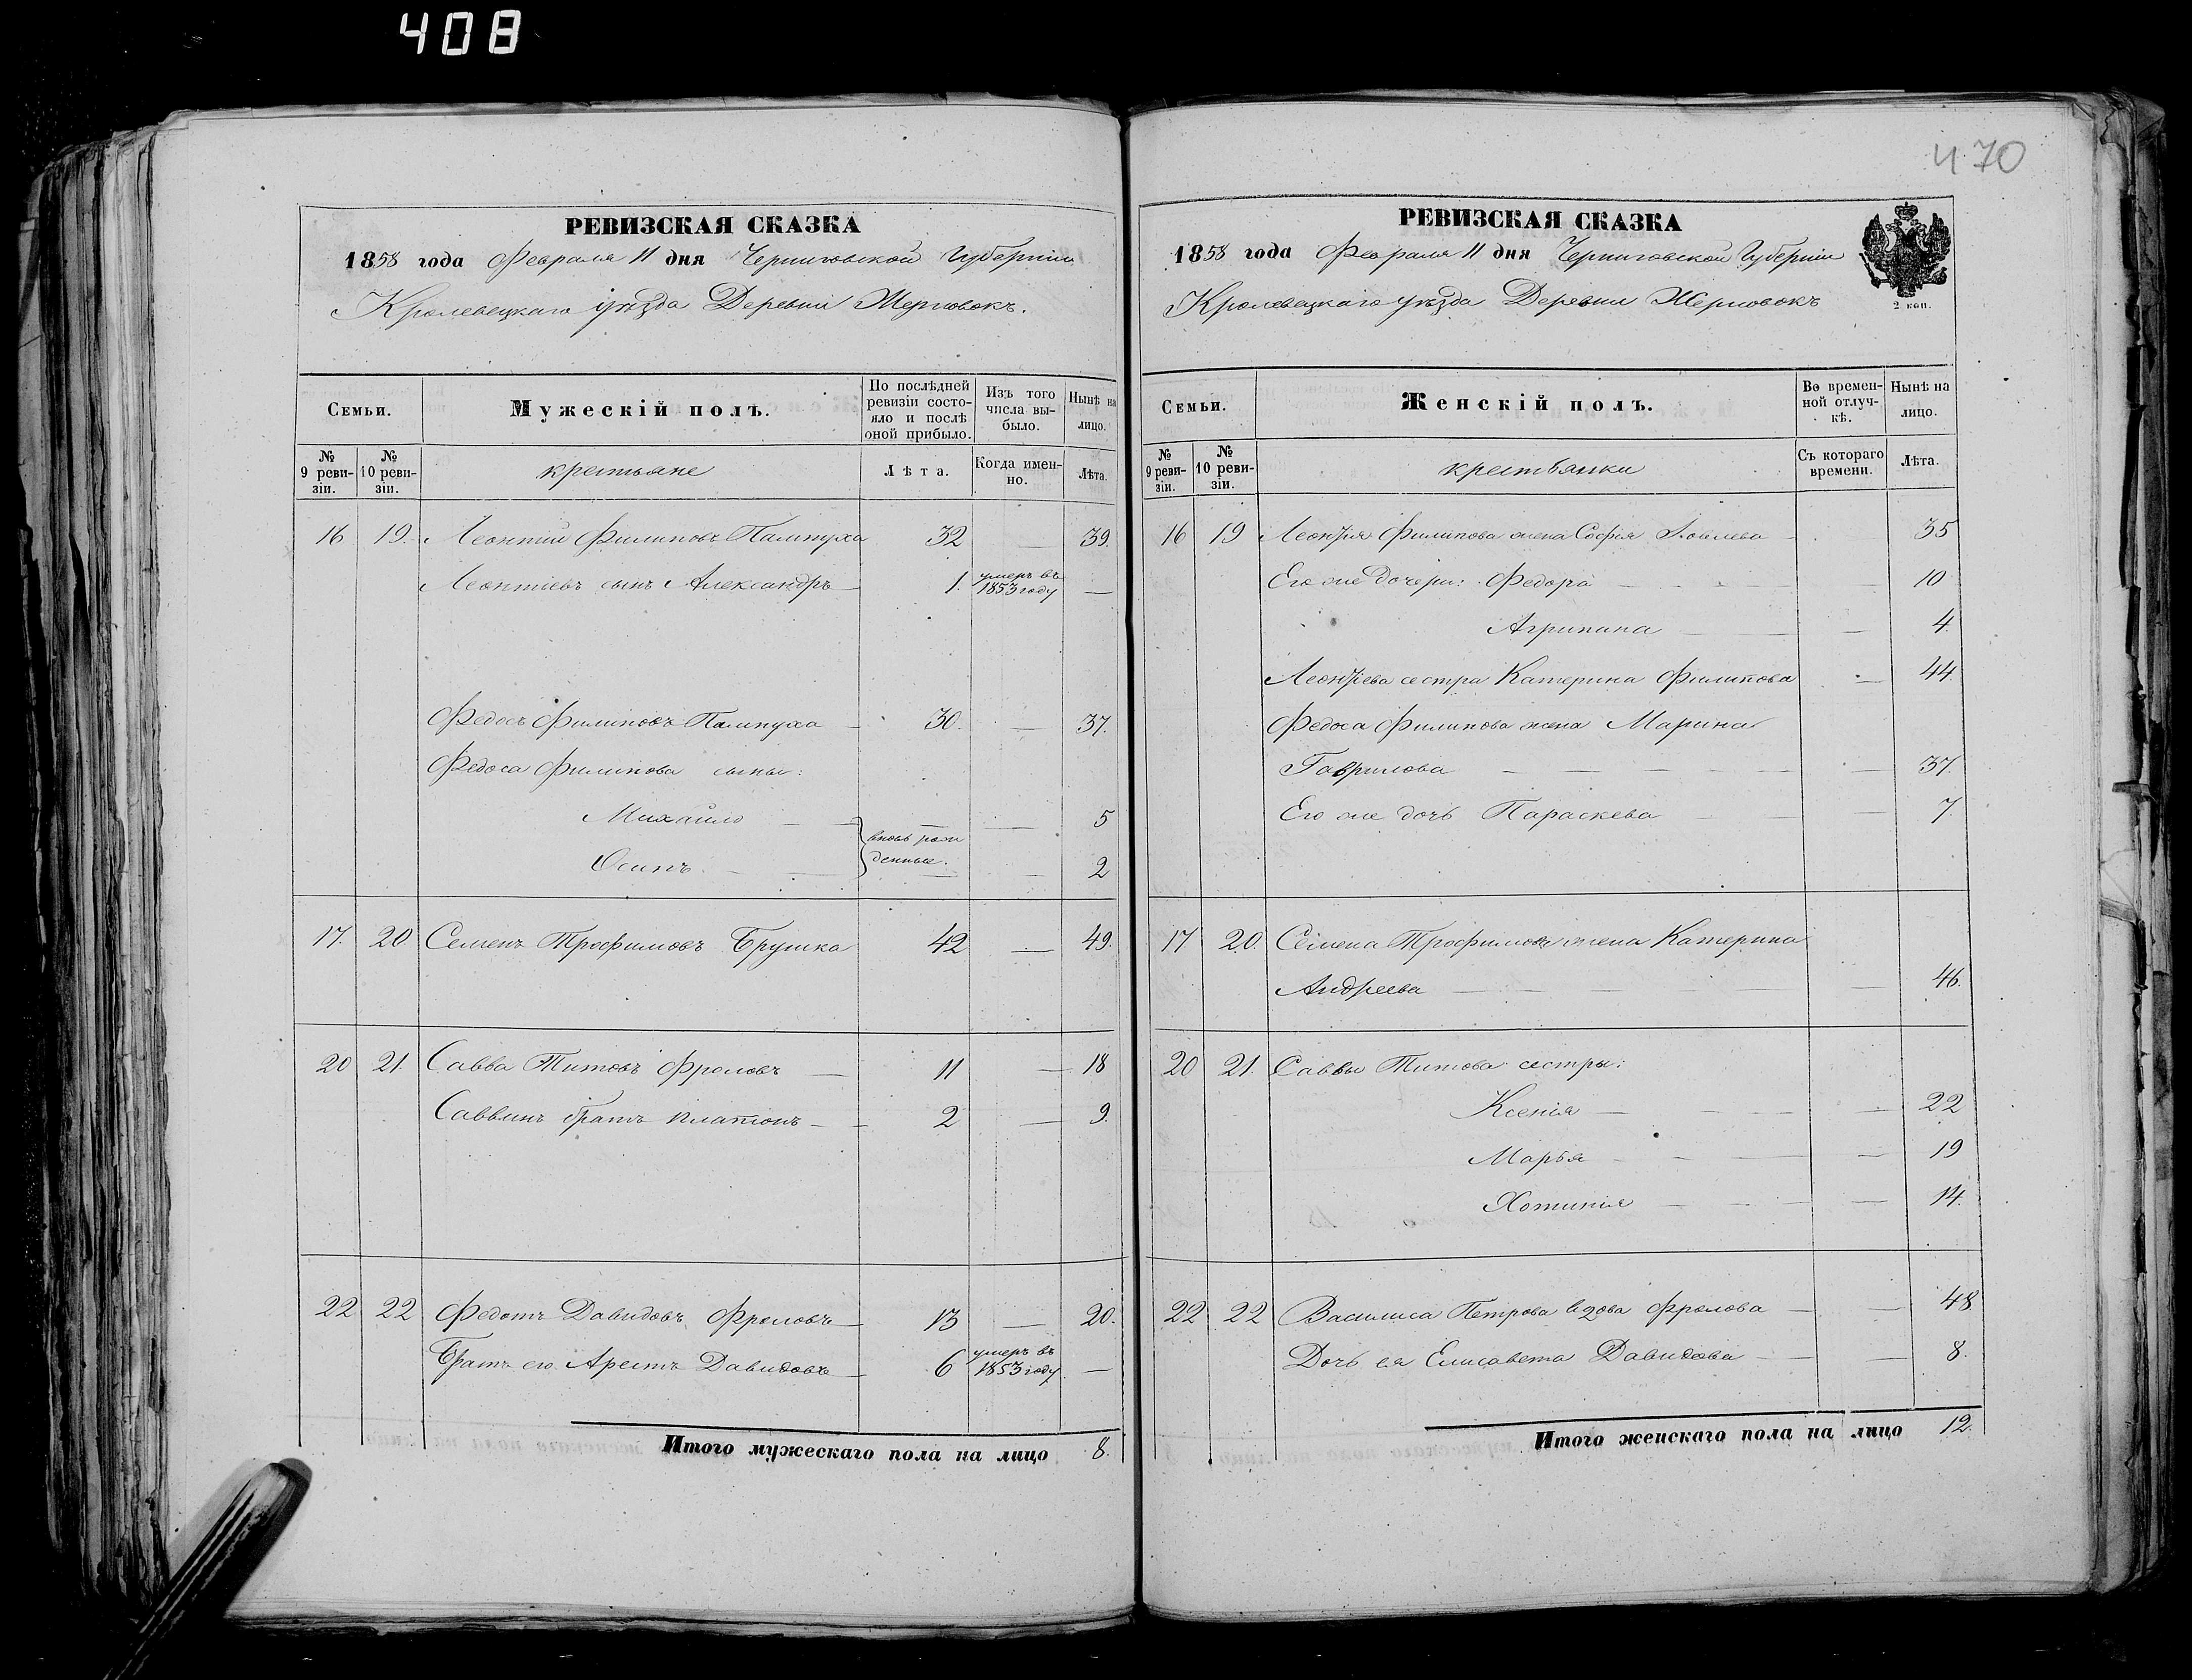 408
470
РЕВИЗСКАЯ СКАЗКА
1858 года Февраля 11 дня Черниговской Губерніи
Кролевецкаго уѣзда Деревни Жерновокъ.
Семьи.
Мужескій полъ.
По послѣдней ревизіи состояло и послѣ оной прибыло.
Изъ того числа выбыло.
Нынѣ на лицо.
№ 9 ревизіи.
№ 10 ревизіи.
крестьяне
Лѣта.
Когда именно.
Лѣта.
16 19. Леонтій Филиповъ Палпуха 32 — 39.
Леонтіевъ сынъ Александръ — 1. умеръ въ 1853 году —
Федосъ Филиповъ Палпуха — 30. — 37.
Федоса Филипова сыны:
Михайло — вновь рожденные. — 5
Осипъ — — 2
17. 20 Семенъ Трофимовъ Брушка 42 — 49.
20 21. Савва Титовъ Фроловъ — 11 — 18
Саввинъ братъ Платонъ — 2 — 9.
22 22 Федотъ Давидовъ Фроловъ — 13 — 20.
Братъ его Арестъ Давидовъ — 6 умеръ въ 1853 году —
Итого мужескаго пола на лицо 8.
РЕВИЗСКАЯ СКАЗКА
1858 года Февраля 11 дня Черниговской Губерніи
Кролевецкаго уѣзда Деревни Жерновокъ
2 коп.
Семьи.
Женскій полъ.
Во временной отлучкѣ.
Нынѣ на лицо.
№ 9 ревизіи.
№ 10 ревизіи.
крестьянки
Съ котораго времени.
Лѣта.
16 19 Леонтія Филипова жена Софія Яковлева — 35
Его же дочери: Федора — — 10
Агрипина — — 4.
Леонтіева сестра Катерина Филипова — 44.
Федоса Филипова жена Марина
Гаврилова — — 37.
Его же дочь Параскева — — 7.
17 20. Семена Трофимова жена Катерина
Андреева — — 46.
20 21. Саввы Титова сестры:
Ксенія — — 22
Марья — — 19
Хотинія — — 14.
22 22 Василиса Петрова вдова Фролова — — 48
Дочь ея Елисавета Давидова — — 8.
Итого женскаго пола на лицо 12.